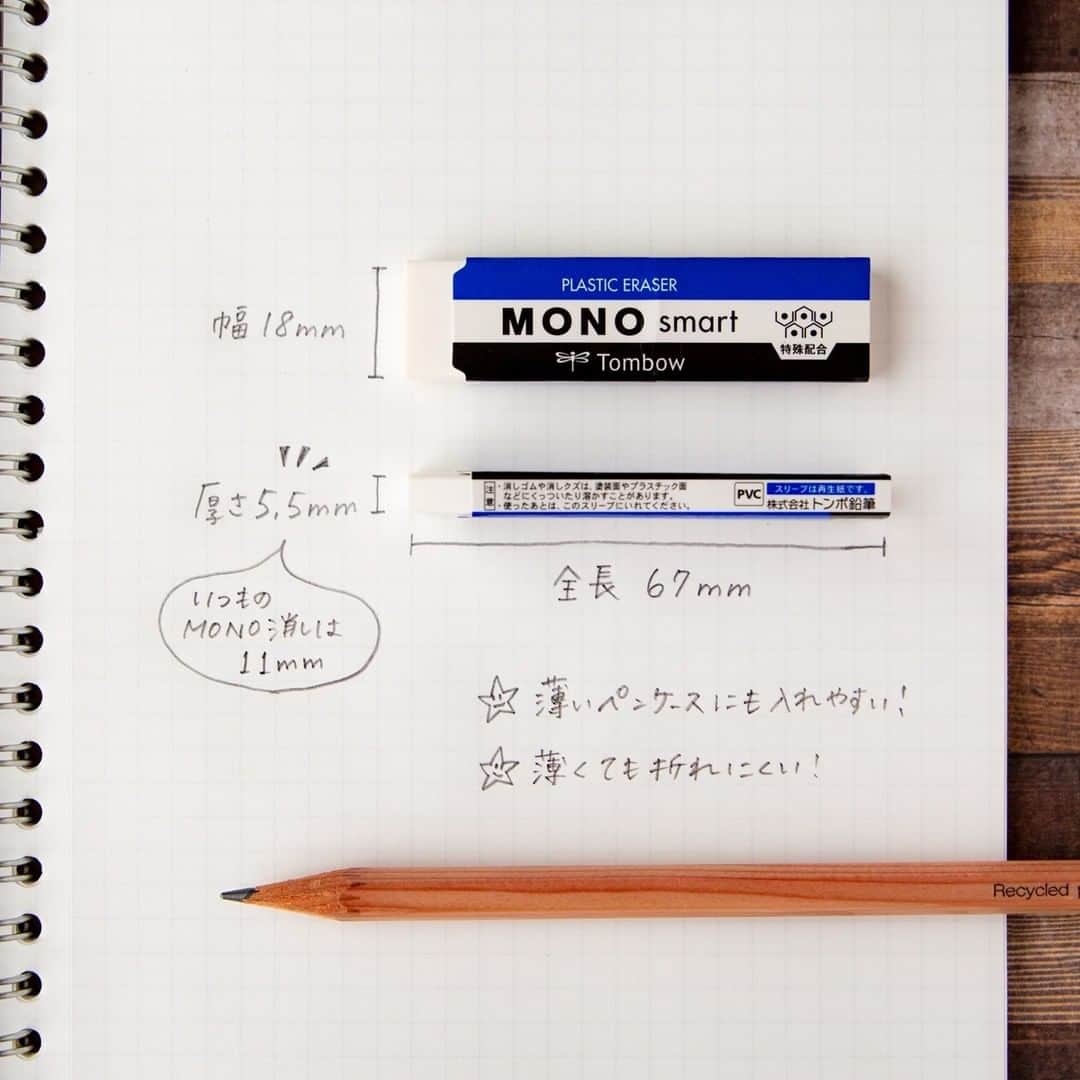 PLASTIC ERASER
幅 18mm
MONO smart
特殊配合
Tombow
厚さ5.5mm
注意
・消しゴムや消しクズは、塗装面やプラスチック面
などにくっついたり溶かすことがあります。
・使ったあとは、このスリーブにいれてください。
PVC
スリーブは再生紙です。
株式会社トンボ鉛筆
全長 67mm
いつもの
MONO消しは
11mm
薄いペンケースにも入れやすい!
薄くても折れにくい!
Recycled